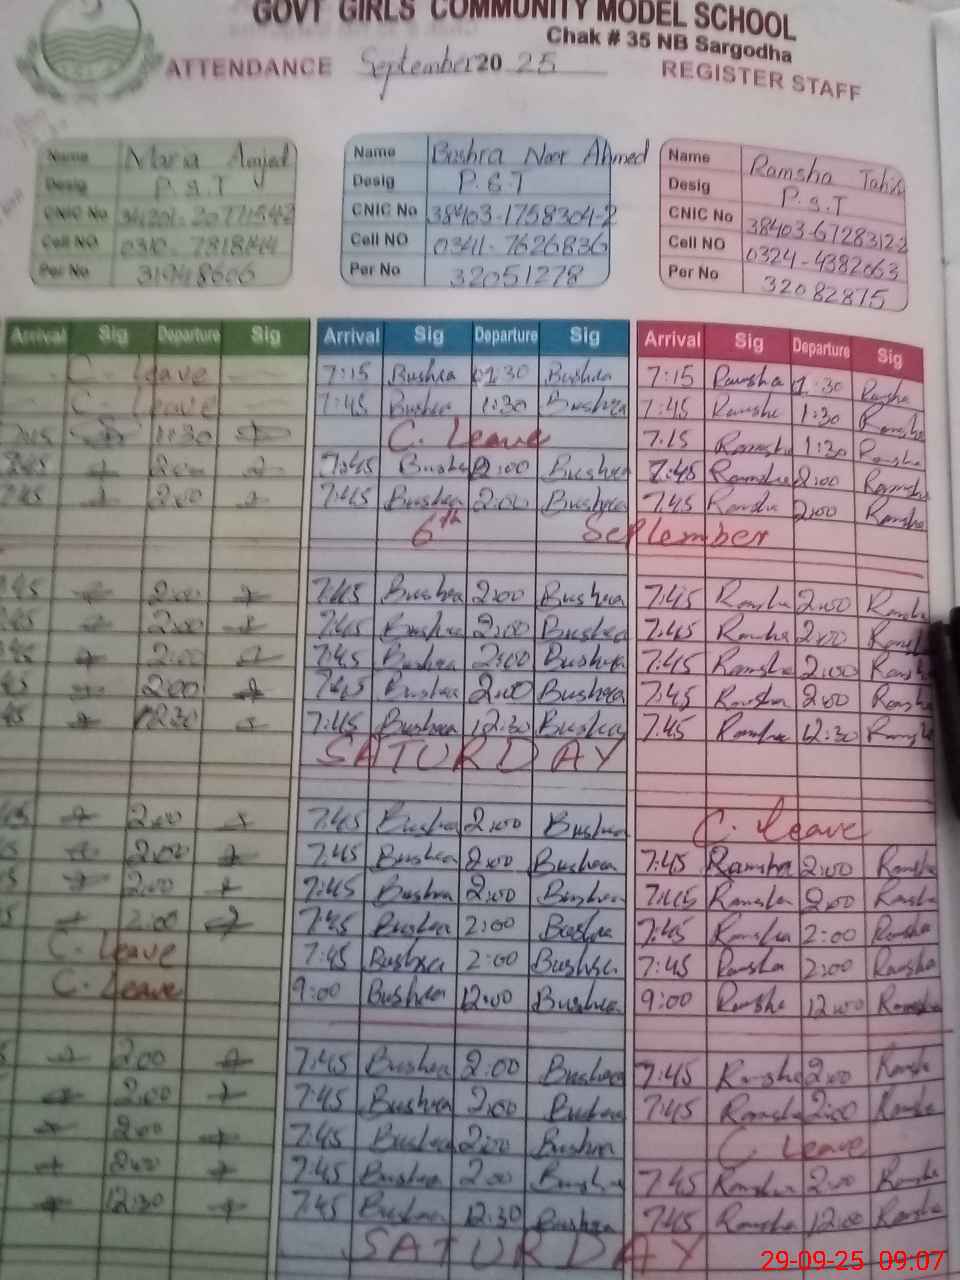 GOVT GIRLS COMMUNITY MODEL SCHOOL
Chak # 35 NB Sargodha
ATTENDANCE September 2025 REGISTER STAFF
Name Maria Amjad Name Bushra Noor Ahmed Name Ramsha Tahir
Desig P.S.T Desig P.S.T Desig P.S.T
CNIC No CNIC No 38403-1758304-2 CNIC No 38403-6728312-2
Cell NO Cell NO 0341-7626836 Cell NO 0324-4382063
Per No 31948606 Per No 32051278 Per No 32082875
Arrival Sig Departure Sig Arrival Sig Departure Sig Arrival Sig Departure Sig
C. Leave 7:15 Bushra 01:30 Bushra 7:15 Ramsha 1:30 Ramsha
C. Leave 7:45 Bushra 1:30 Bushra 7:45 Ramsha 1:30 Ramsha
1:30 C. Leave 7:15 Ramsha 1:30 Ramsha
7:45 2:00 7:45 Bushra 2:00 Bushra 7:45 Ramsha 2:00 Ramsha
7:45 2:00 7:45 Bushra 2:00 Bushra 7:45 Ramsha 2:00 Ramsha
6th September
:45 2:00 7:45 Bushra 2:00 Bushra 7:45 Ramsha 2:00 Ramsha
:45 2:00 7:45 Bushra 2:00 Bushra 7:45 Ramsha 2:00 Ramsha
:45 2:00 7:45 Bushra 2:00 Bushra 7:45 Ramsha 2:00 Ramsha
45 2:00 7:45 Bushra 2:00 Bushra 7:45 Ramsha 2:00 Ramsha
45 12:30 7:45 Bushra 12:30 Bushra 7:45 Ramsha 12:30 Ramsha
SATURDAY
45 2:00 7:45 Bushra 2:00 Bushra C. Leave
5 2:00 7:45 Bushra 2:00 Bushra 7:45 Ramsha 2:00 Ramsha
5 2:00 7:45 Bushra 2:00 Bushra 7:45 Ramsha 2:00 Ramsha
5 2:00 7:45 Bushra 2:00 Bushra 7:45 Ramsha 2:00 Ramsha
C. Leave 7:45 Bushra 2:00 Bushra 7:45 Ramsha 2:00 Ramsha
C. Leave 9:00 Bushra 12:00 Bushra 9:00 Ramsha 12:00 Ramsha
2:00 7:45 Bushra 2:00 Bushra 7:45 Ramsha 2:00 Ramsha
2:00 7:45 Bushra 2:00 Bushra 7:45 Ramsha 2:00 Ramsha
2:00 7:45 Bushra 2:00 Bushra C Leave
2:00 7:45 Bushra 2:00 Bushra 7:45 Ramsha 2:00 Ramsha
12:30 7:45 Bushra 12:30 Bushra 7:45 Ramsha 12:00 Ramsha
SATURDAY
29-09-25 09:07